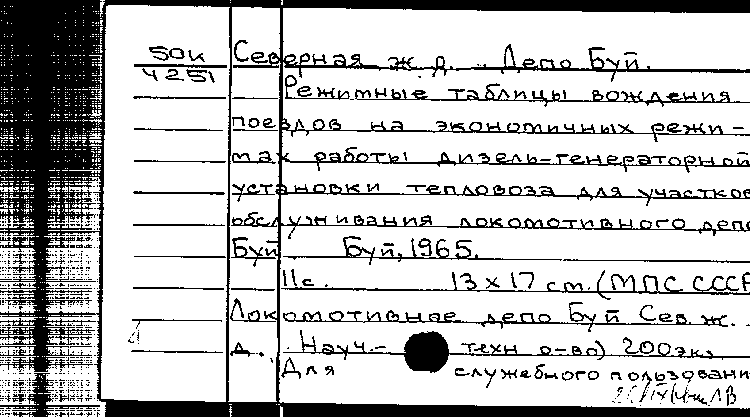 50к
4251
Северная ж.д. .. Депо Буй.
Режимные таблицы вождения
поездов на экономичных режи-
мах работы дизель-генераторной
установки тепловоза для участков
обслуживания локомотивного депо
Буй Буй, 1965.
11с. 13 x 17 см. (МПС СССР
Локомотивное депо Буй Сев. ж.
д. Науч.- техн о-во) 200 экз
Для служебного пользовани